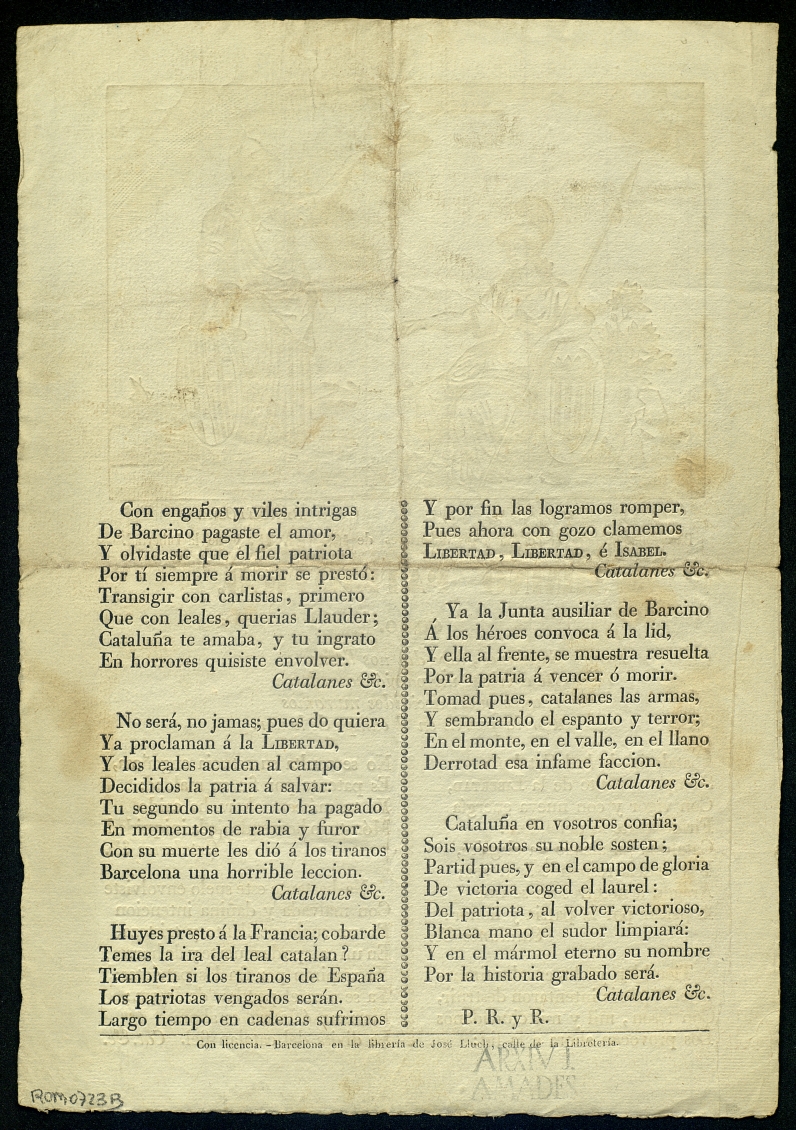 Con engaños y viles intrigas
De Barcino pagaste el amor,
Y olvidaste que el fiel patriota
Por tí siempre á morir se prestó:
Transigir con carlistas, primero
Que con leales, querias Llauder;
Cataluña te amaba, y tu ingrato
En horrores quisiste envolver.
Catalanes &c.
No será, no jamas; pues do quiera
Ya proclaman á la LIBERTAD,
Y los leales acuden al campo
Decididos la patria á salvar:
Tu segundo su intento ha pagado
En momentos de rabia y furor
Con su muerte les dió á los tiranos
Barcelona una horrible leccion.
Catalanes &c.
Huyes presto á la Francia; cobarde
Temes la ira del leal catalan?
Tiemblen si los tiranos de España
Los patriotas vengados serán.
Largo tiempo en cadenas sufrimos
Y por fin las logramos romper,
Pues ahora con gozo clamemos
LIBERTAD, LIBERTAD, é ISABEL.
Catalanes &c.
Ya la Junta ausiliar de Barcino
Á los héroes convoca á la lid,
Y ella al frente, se muestra resuelta
Por la patria á vencer ó morir.
Tomad pues, catalanes las armas,
Y sembrando el espanto y terror;
En el monte, en el valle, en el llano
Derrotad esa infame faccion.
Catalanes &c.
Cataluña en vosotros confia;
Sois vosotros su noble sosten;
Partid pues, y en el campo de gloria
De victoria coged el laurel:
Del patriota, al volver victorioso,
Blanca mano el sudor limpiará:
Y en el mármol eterno su nombre
Por la historia grabado será.
Catalanes &c.
P. R. y R.
Con licencia. - Barcelona en la librería de José Lluch, calle de la Libretería.
ARXIV J.
AMADES
ROM0723B